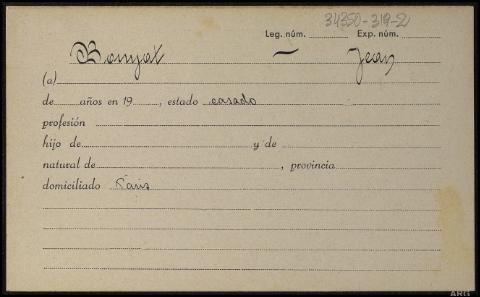 34350-319-2
Leg. núm. Exp. núm.
Bonyat — Jean
(a)
de años en 19 , estado casado
profesión
hijo de y de
natural de , provincia
domiciliado Paris
ARG